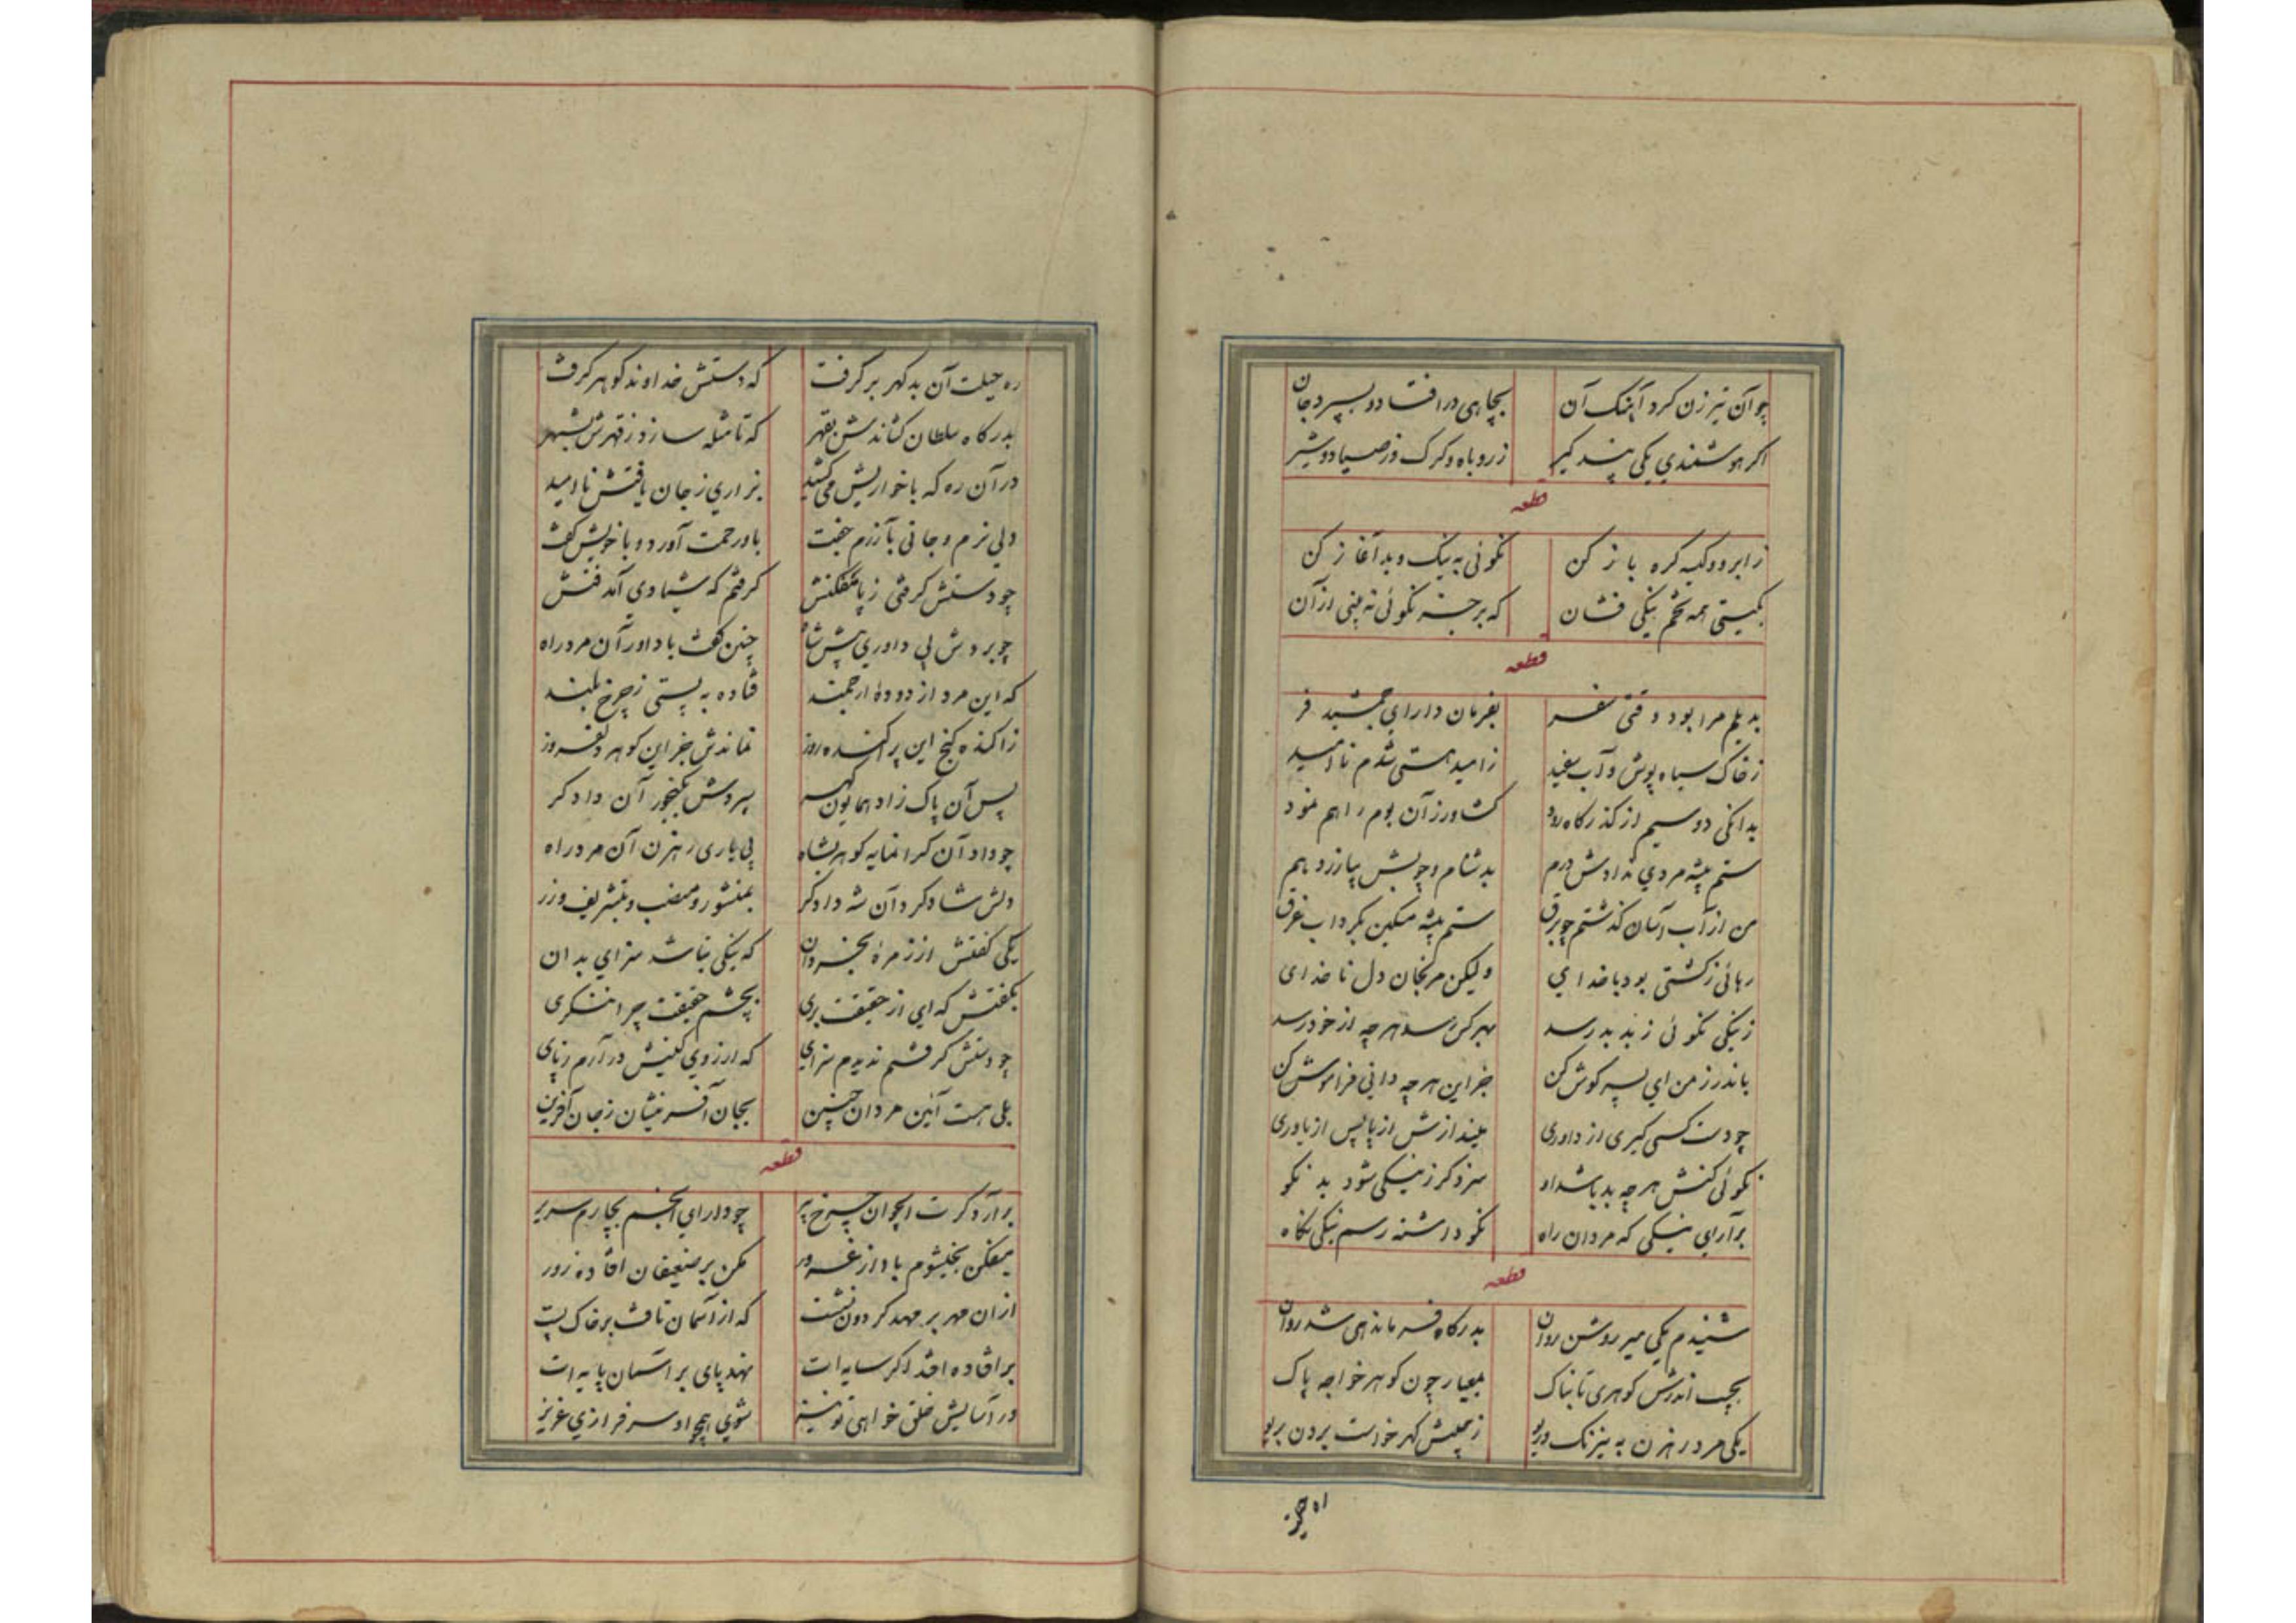 چو آن تیر زن کرد آهنک آن بچاهی در افتاد و بسپرد جان
اکر هوشمندی یکی پند کیر ز روباه و کرک و ز صیاد و شیر
قطعه
ز ابرو و کیسه کره باز کن نکوئی به نیک و بد آغاز کن
بکیتی همه تخم نیکی فشان که بر جز نکوئی نه بینی از آن
قطعه
بدیلم مرا بود وقتی سفر بفرمان دارای جمشید فر
ز خاک سیاه پوش و آب سفید ز امید هستی شدم نا امید
بدانکی دو سیم از کذرکاه رود کشاورز آن بوم راهم نمود
ستم پیشه مردی ندادش درم بدشنام و چوبش بیازرد هم
من از آب آسان کذشتم چو برق ستم پیشه مسکین بکرداب غرق
رهائی ز کشتی بود با خدای ولیکن مرنجان دل ناخدای
ز نیکی نکوئی ز بد بد رسد بهر کس رسد هر چه از خود رسد
باندرز من ای پسر کوش کن جز این هر چه دانی فراموش کن
چو دست کسی کیری از داوری میندازش از پا پس از یاوری
نکوئی کنش هر چه بد باشد او سزد کر ز نیکی شود بد نکو
بر آرای نیکی که مردان راه نکو داشته رسم نیکی نکاه
قطعه
شنیدم یکی میر روشن روان بدرکاه فرماندهی شد روان
بجیب اندرش کوهری تابناک بمعیار چون کوهر خواجه پاک
یکی مرد رهزن به نیرنک و ریو ز جیبش کهر خواست بردن بریو
ره حیلت آن بد کهر بر کرفت که دستش خداوند کوهر کرفت
بدرکاه سلطان کشاندش بقهر که تا مثله سازد ز قهرش بشهر
در آن ره که با خواریش می‌کشید بزاری ز جان یافتش نا امید
دلی نرم و جانی بآزرم جفت باو رحمت آورد و با خویش کفت
چو دستش کرفتی ز پا مفکنش کرفتم که شیادی آمد فنش
چو بردش پی داوری پیش شاه چنین کفت با داور آن مرد راه
که این مرد از دودهٔ ارجمند فتاده به پستی ز چرخ بلند
ز آکنده کنج این پراکنده روز نماندش جز این کوهر دلفروز
پس آن پاک زاد همایون کهر سپردش بکنجور آن دادکر
چو داد آن کرانمایه کوهر بشاه پی یاری رهزن آن مرد راه
دلش شاد کرد آن شه دادکر بمنشور و منصب و تشریف و زر
یکی کفتش از زمرهٔ بخردان که نیکی نباشد سزای بدان
بکفتش که ای از حقیقت بری بچشم حقیقت چرا ننکری
چو دستش کرفتم ندیدم سزای که از روی کینش در آرم ز پای
بلی هست آئین مردان چنین بجان آفرینشان ز جان آفرین
قطعه
بر آرد کرت ای جوان چرخ پیر چو دارای انجم بچارم سریر
میفکن بخیشوم باد از غرور مکن بر ضعیفان افتاده زور
از آن مهر بر مهد کردون نشست که از آسمان تافت بر خاک پست
بر افتاده افتد اکر سایه‌ات نهد پای بر آسمان پایه‌ات
ور آسایش خلق خواهی تو نیز شوی همچو او سرفرازی عزیز